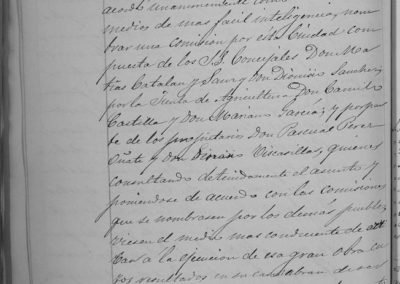 acordó unanimemente como
medios de mas facil inteligencia, nom
brar una Comision por esta Ciudad com
puesta de los S.S. Concejales Don Ma
tias Catalan y Sanz y Don Dionisio Sanchez,
por la Junta de Agricultura, Don Camilo
Castilla y Don Mariano García; y por par
te de los propietarios Don Pascual Perez
Oñate y Don Viscasillas, quienes
consultando detenidamente el asunto y
poniendose de acuerdo con las comisiones
que se nombrasen por los demás pueblos,
viesen el medio mas conducente de
á la ejecucion de esa gran obra cu
yos resultados en su